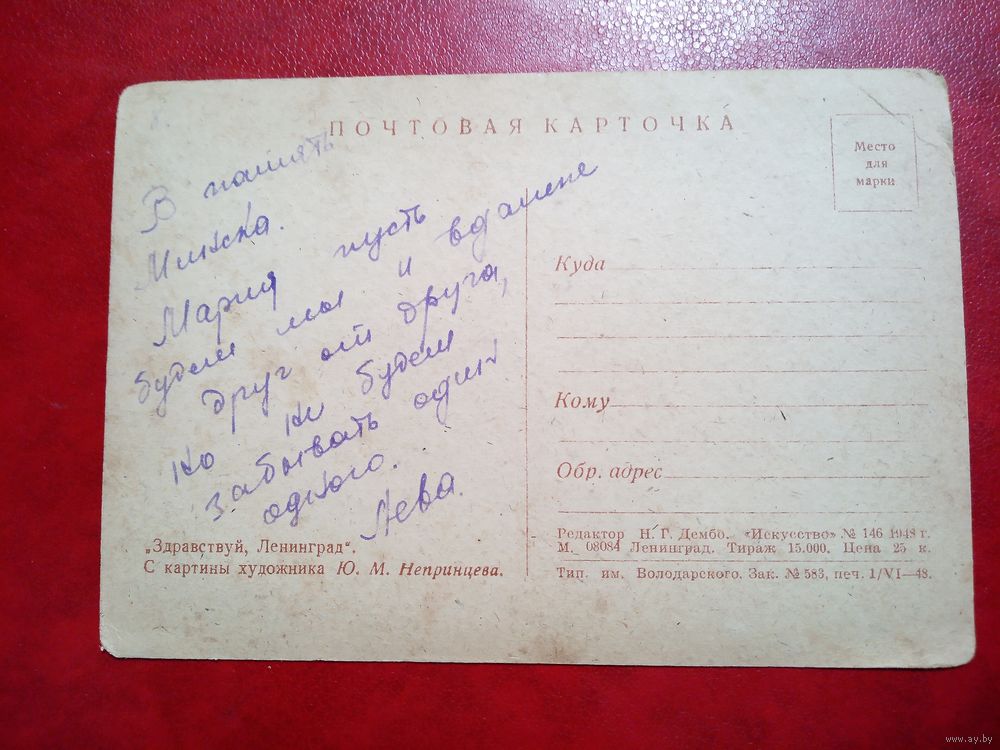 ПОЧТОВАЯ КАРТОЧКА
Место
для
марки
В память
Минска.
Мария пусть
будем мы и вдалине
друг от друга,
но ни будем
забывать один
одного.
Лева.
„Здравствуй, Ленинград“.
С картины художника Ю. М. Непринцева.
Куда
Кому
Обр. адрес
Редактор Н. Г. Дембо. «Искусство» № 146 1948 г.
М. 08084 Ленинград. Тираж 15.000. Цена 25 к.
Тип. им. Володарского. Зак. № 583, печ. 1/VI—48.
www.ay.by